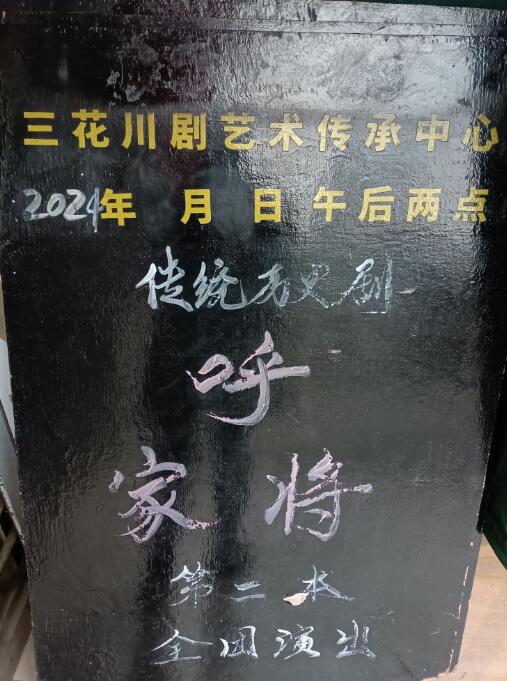 三花川剧艺术传承中心
2024年 月 日 午后两点
传统历史剧
呼
家将
第二本
全团演出